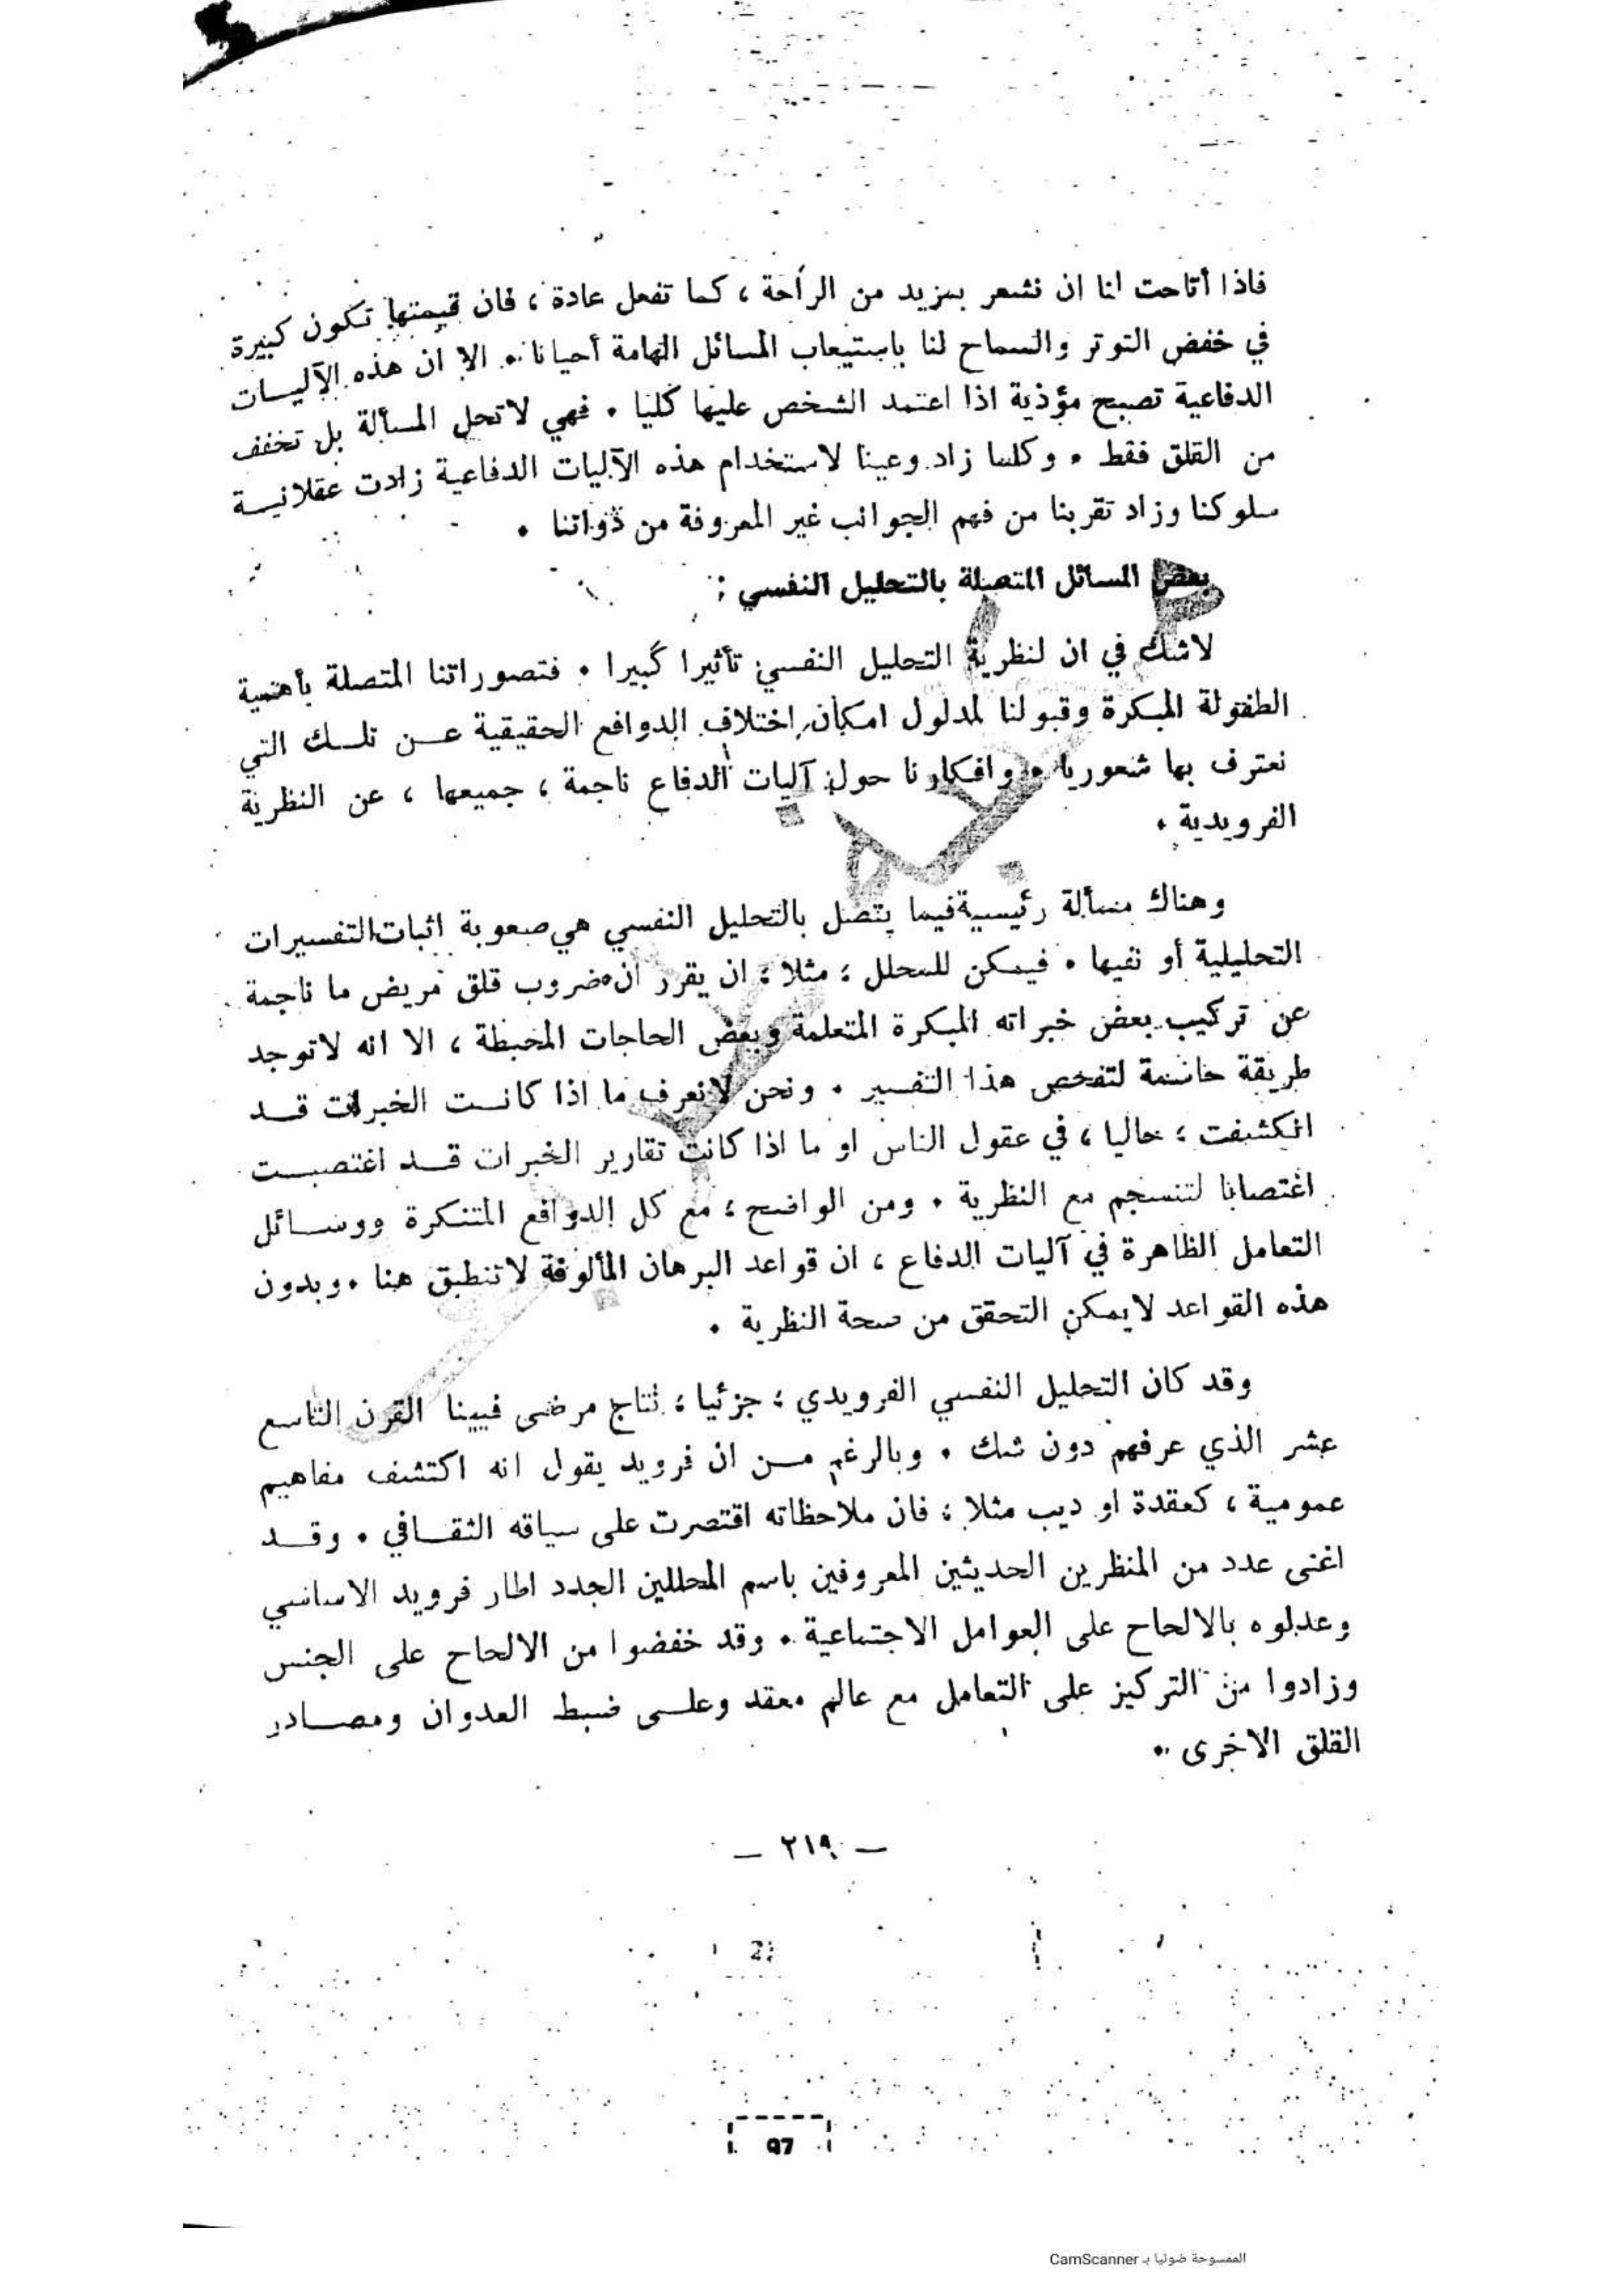 فاذا أتاحت لنا ان نشعر بمزيد من الراحة ، كما تفعل عادة ، فان قيمتها تكون كبيرة
في خفض التوتر والسماح لنا باستيعاب المسائل الهامة أحيانا . الا ان هذه الآليـات
الدفاعية تصبح مؤذية اذا اعتمد الشخص عليها كليا . فهي لاتحل المسألة بل تخفف
من القلق فقط . وكلما زاد وعينا لاستخدام هذه الآليات الدفاعية زادت عقلانيـة
سلوكنا وزاد تقربنا من فهم الجوانب غير المعروفة من ذواتنا .
بعض المسائل المتصلة بالتحليل النفسي :
لاشك في ان لنظرية التحليل النفسي تأثيرا كبيرا . فتصوراتنا المتصلة بأهمية
الطفولة المبكرة وقبولنا لمدلول امكان اختلاف الدوافع الحقيقية عـن تلـك التي
نعترف بها شعوريا ، وافكارنا حول آليات الدفاع ناجمة ، جميعها ، عن النظرية
الفرويدية .
وهناك مسألة رئيسية فيما يتصل بالتحليل النفسي هي صعوبة اثبات التفسيرات
التحليلية أو نفيها . فيمكن للمحلل ، مثلا ، ان يقرر ان ضروب قلق مريض ما ناجمة
عن تركيب بعض خبراته المبكرة المتعلمة وبعض الحاجات المحبطة ، الا انه لاتوجد
طريقة حاسمة لتفحص هذا التفسير . ونحن لانعرف ما اذا كانـت الخبرات قـد
انكشفت ، حاليا ، في عقول الناس او ما اذا كانت تقارير الخبرات قـد اغتصبـت
اغتصابا لتنسجم مع النظرية . ومن الواضح ، مع كل الدوافع المتنكرة ووسـائل
التعامل الظاهرة في آليات الدفاع ، ان قواعد البرهان المألوفة لاتنطبق هنا . وبدون
هذه القواعد لايمكن التحقق من صحة النظرية .
وقد كان التحليل النفسي الفرويدي ، جزئيا ، نتاج مرضى فيينا القرن التاسع
عشر الذي عرفهم دون شك . وبالرغم مـن ان فرويد يقول انه اكتشف مفاهيم
عمومية ، كعقدة او ديب مثلا ، فان ملاحظاته اقتصرت على سياقه الثقـافي . وقـد
اغنى عدد من المنظرين الحديثين المعروفين باسم المحللين الجدد اطار فرويد الاساسي
وعدلوه بالالحاح على العوامل الاجتماعية . وقد خفضوا من الالحاح على الجنس
وزادوا من التركيز على التعامل مع عالم معقد وعلـى ضبط العدوان ومصـادر
القلق الاخرى .
— ٢١٩ —
97
الممسوحة ضوئيا بـ CamScanner